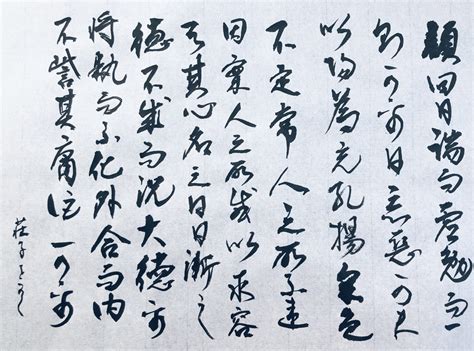 顏回曰端而虛勉而一
則可乎曰惡惡可夫
以陽為充孔揚采色
不定常人之所不違
因案人之所感以求容
與其心名之曰日漸之
德不成而況大德乎
將執而不化外合而內
不訾其庸詎可乎
莊子